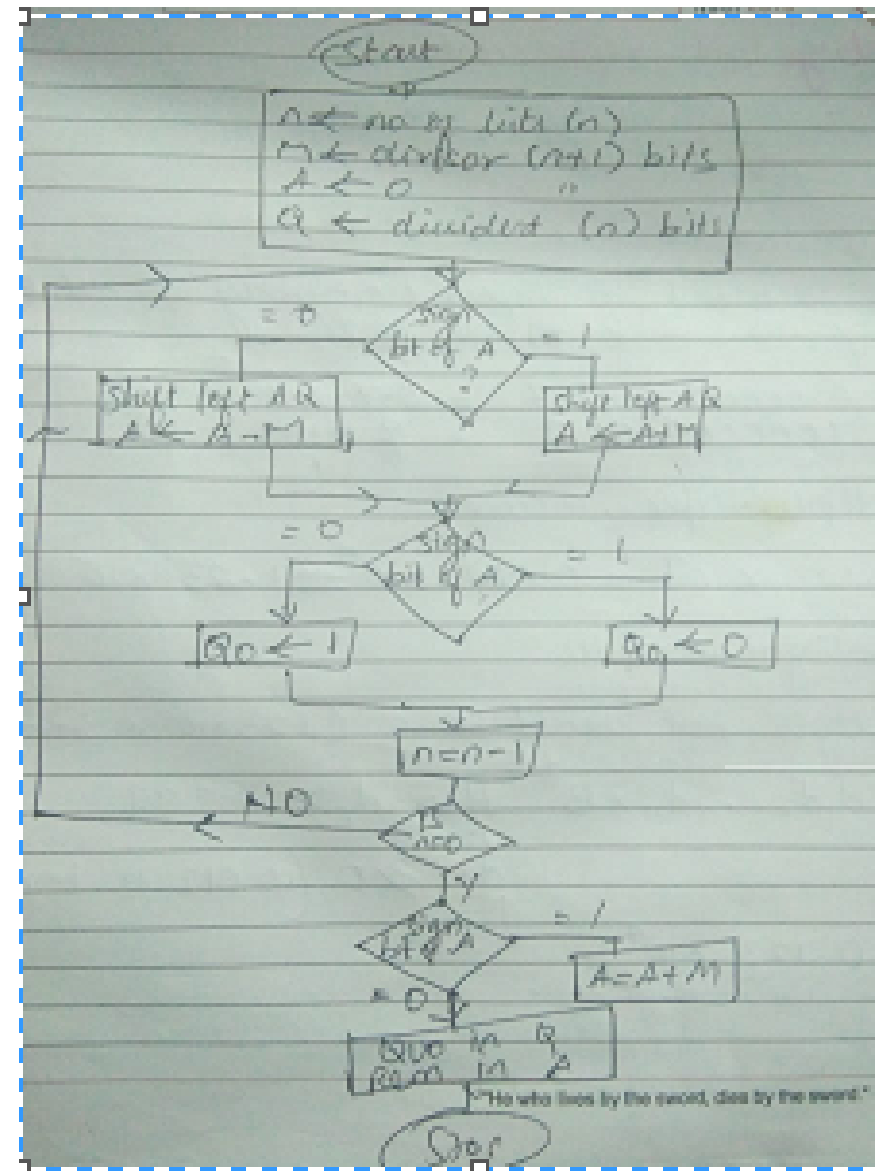 Start
n ← no of bits (n)
M ← divisor (n+1) bits
A ← 0 "
Q ← divident (n) bits
= 0
sign
bit of A
?
= 1
Shift left AQ
A ← A - M
Shift left AQ
A ← A+M
= 0
sign
bit of A
= 1
Q0 ← 1
Q0 ← 0
n=n-1
NO
Is
n=0
Y
sign
bit of A
= 1
A=A+M
= 0
QUO in Q
Rem in A
"He who lives by the sword, dies by the sword."
Stop